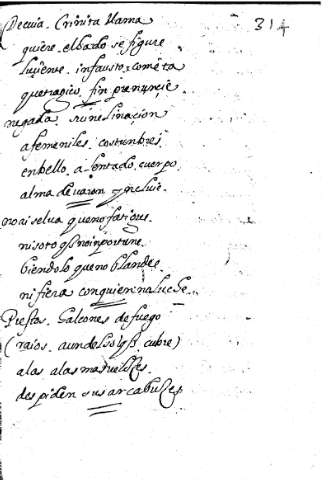 314
Decuia. Crinita llama
quiere. el hado se figure
luçiente. infausto. cometa
que tragico. fin prenunçie
negada. su neclinaçion
a femeniles. costumbres.
en bello. alentado. cuerpo
alma de varon. incluie.
no ai selua que no fatigue.
ni soto q̃ no inportune.
biendo lo que no blandee.
ni fiera con quien no luche.
Prestos. Halcones de fuego
(raios. aun del sol q̃ cubre)
a las alas mas veloçes.
despiden sus arcabuçes